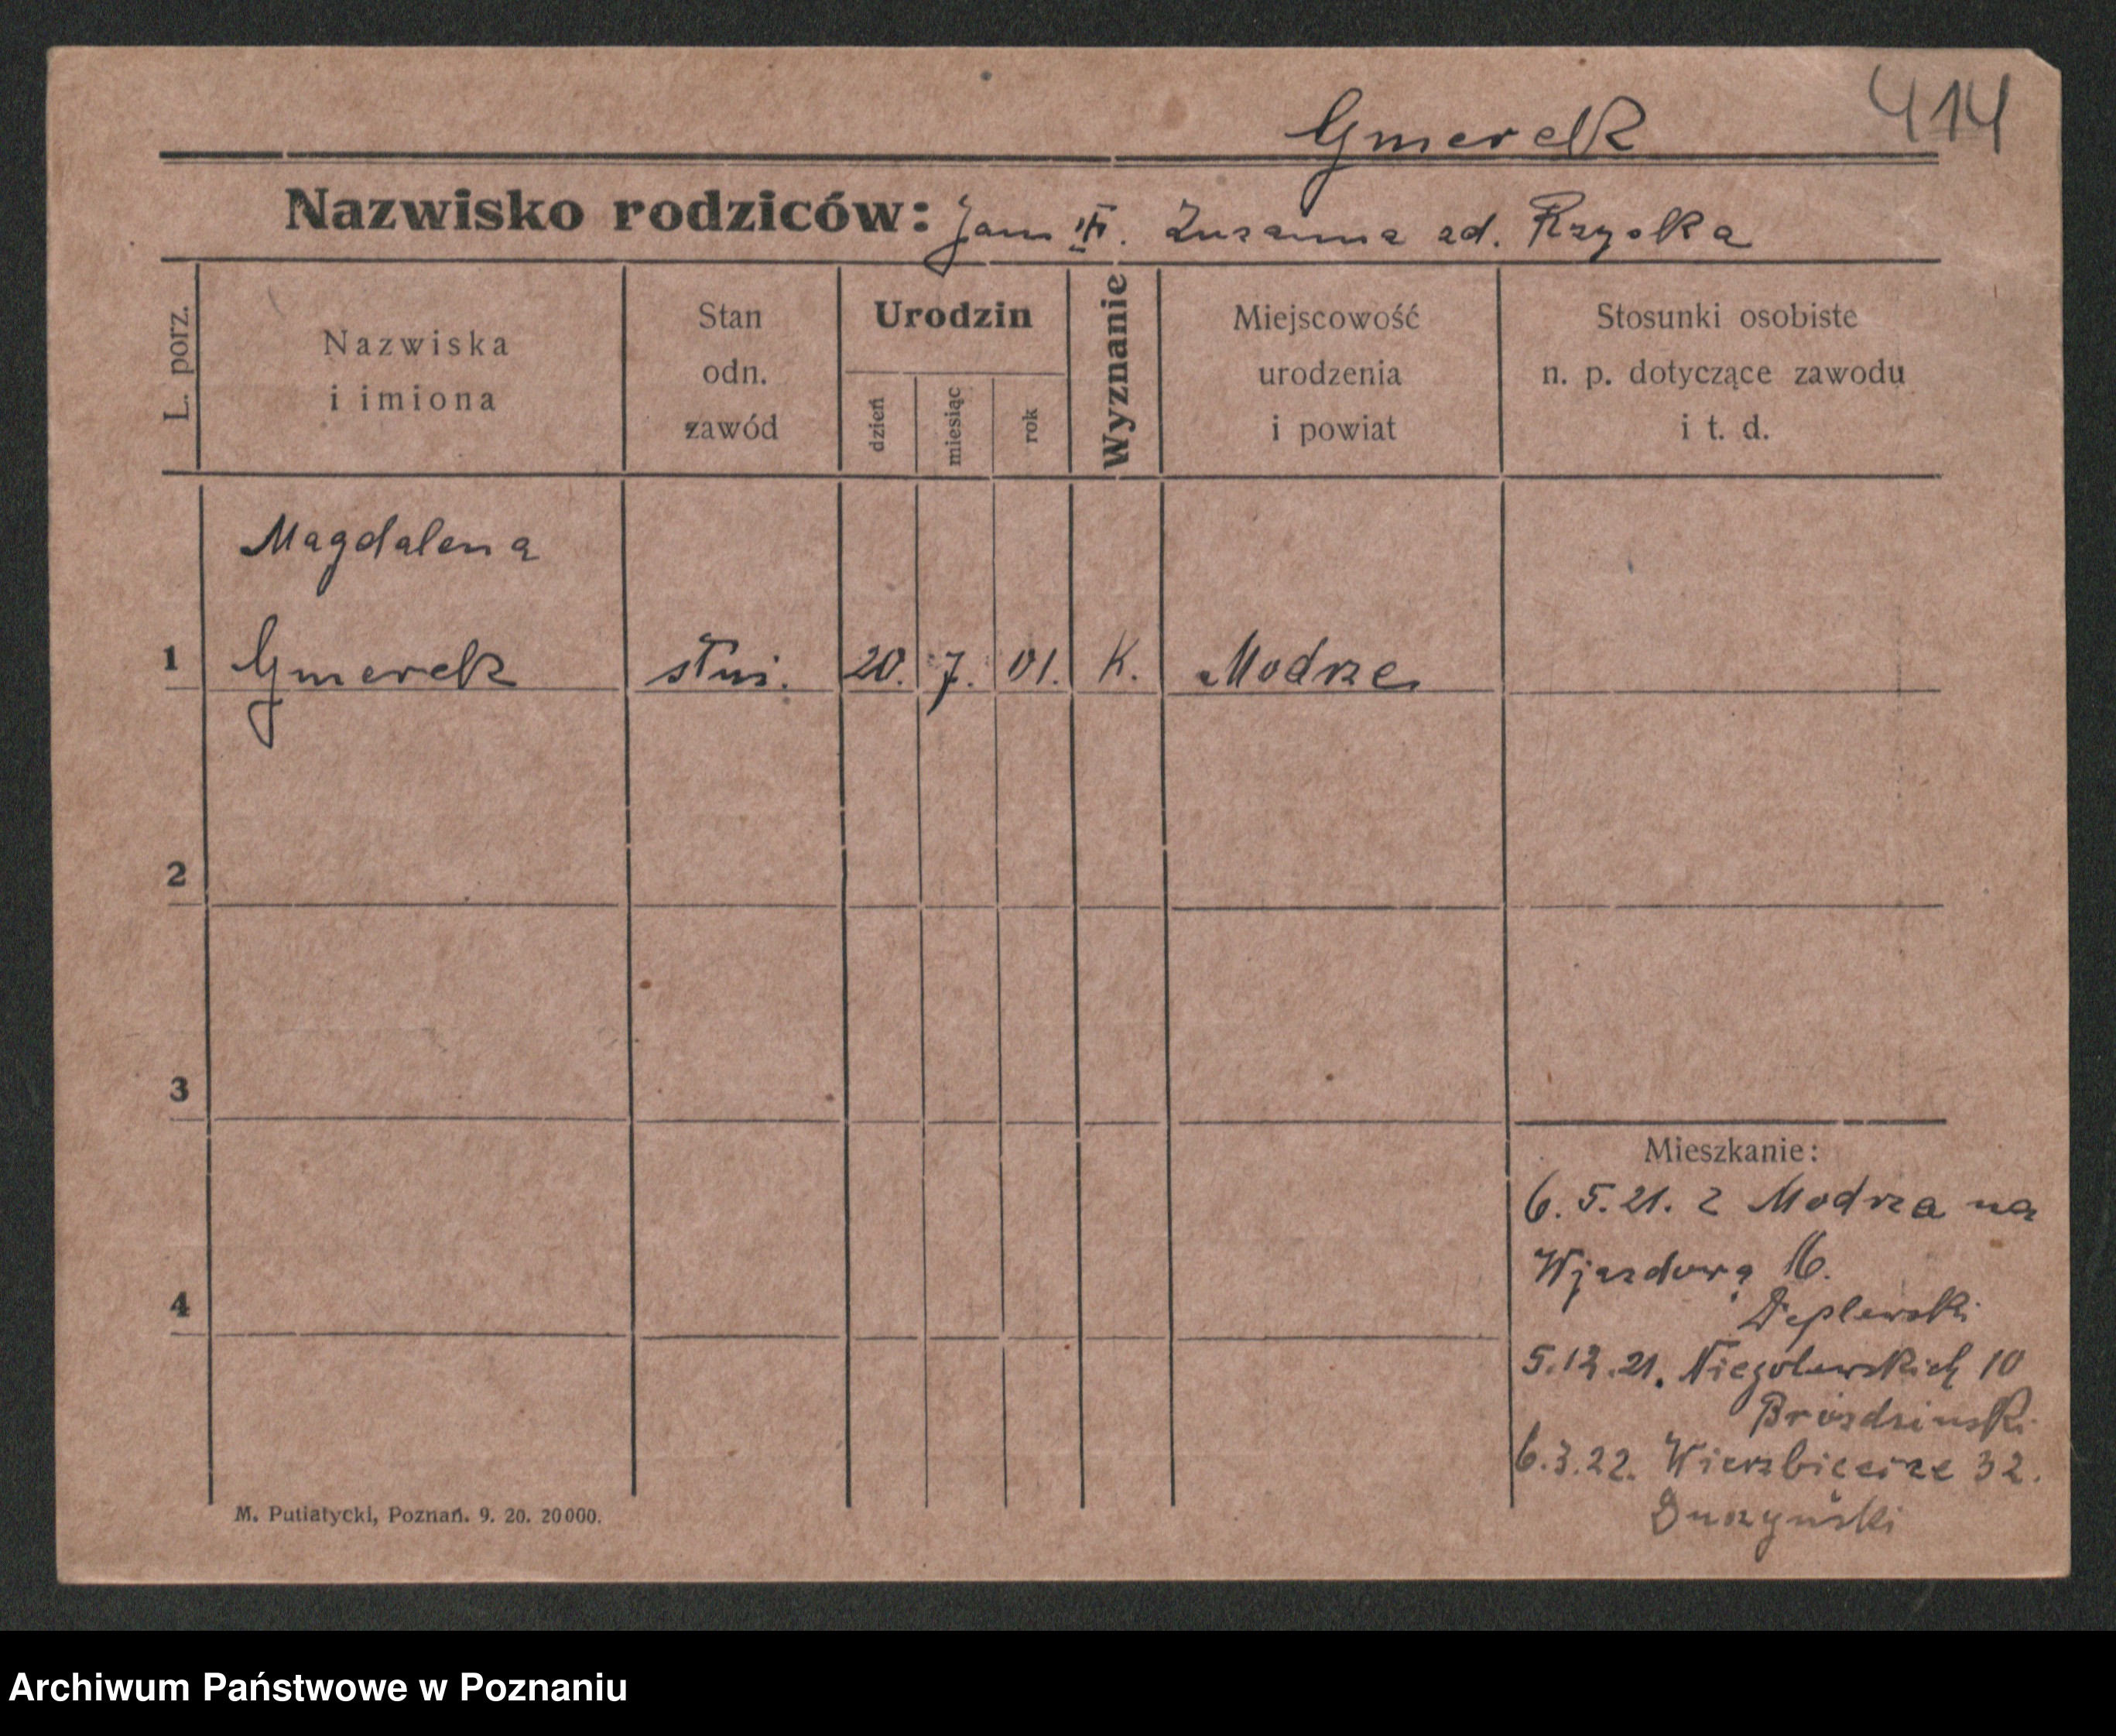 414
Gmerek
Nazwisko rodziców: Jan Zuzanna zd.
L. porz.
Nazwiska
i imiona
Stan
odn.
zawód
Urodzin
dzień
miesiąc
rok
Wyznanie
Miejscowość
urodzenia
i powiat
Stosunki osobiste
n. p. dotyczące zawodu
i t. d.
Magdalena
1 Gmerek służ. 20. 7. 01. K. Modrze
2
3
Mieszkanie:
6.5.21. z Modrza na
Wjazdową 16.
4
5.12.21. Niegolewskich 10
6.3.22. Wierzbięcice 32.
M. Putiatycki, Poznań. 9. 20. 20000.
Archiwum Państwowe w Poznaniu